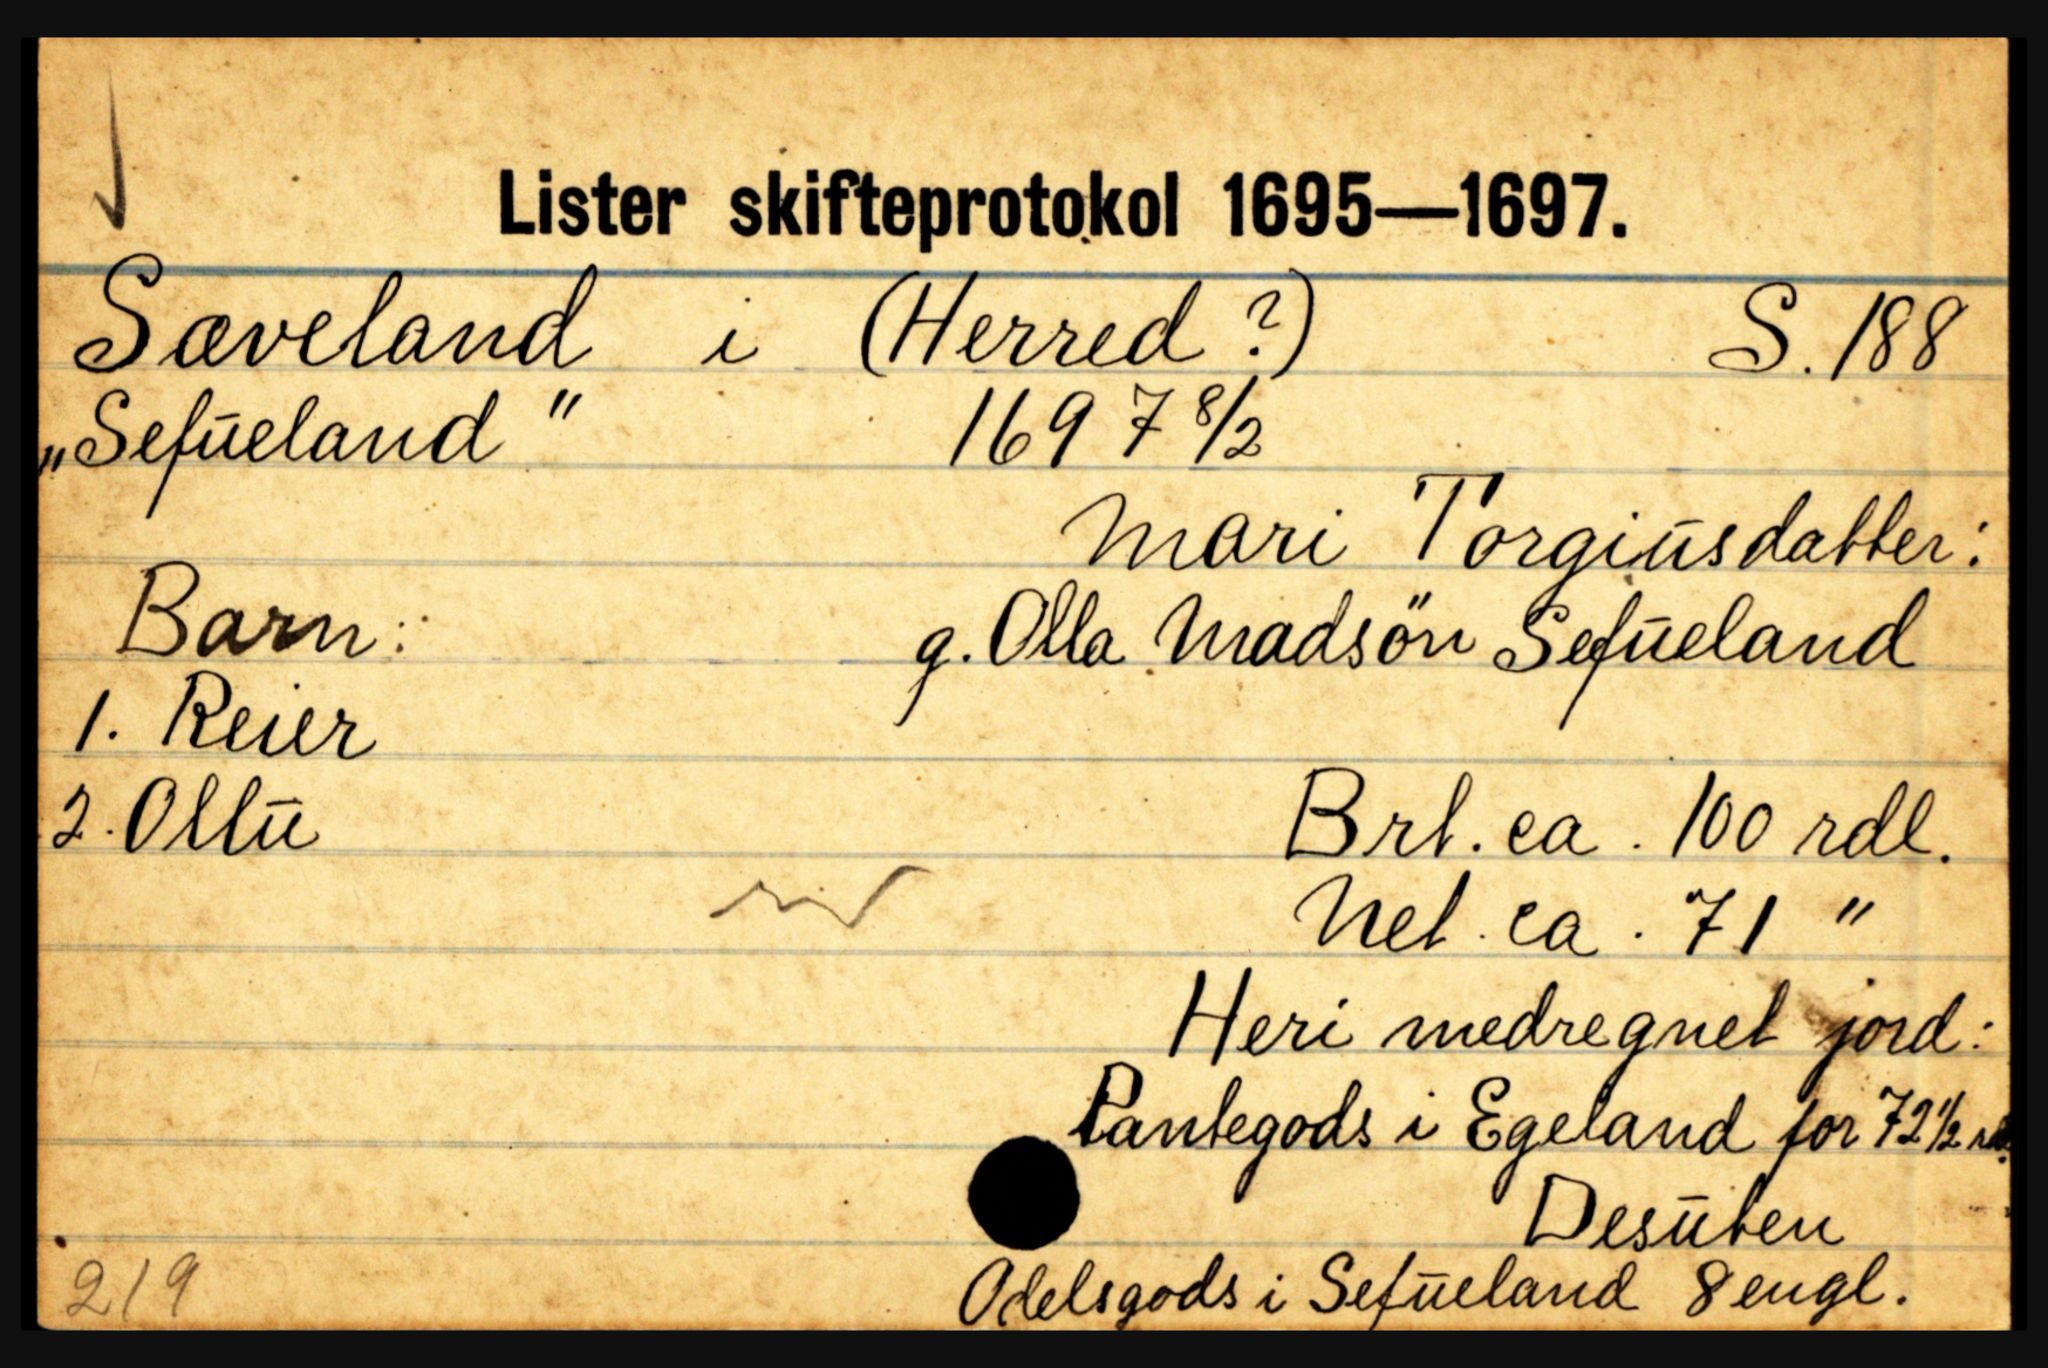 Lister skifteprotokol 1695—1697.
Sæveland i (Herred ?) S. 188
„Sefūeland" 1697 8/2
Mari Torgiūsdatter:
Barn: g. Olla Madsön Sefūeland
1. Reier
2. Ollū Brt. ca. 100 rdl.
Net. ca. 71 "
Heri medregnet jord:
Pantegods i Egeland for 72 1/2 rdl.
Desūten
219 Odelsgods i Sefūeland 8 engl.